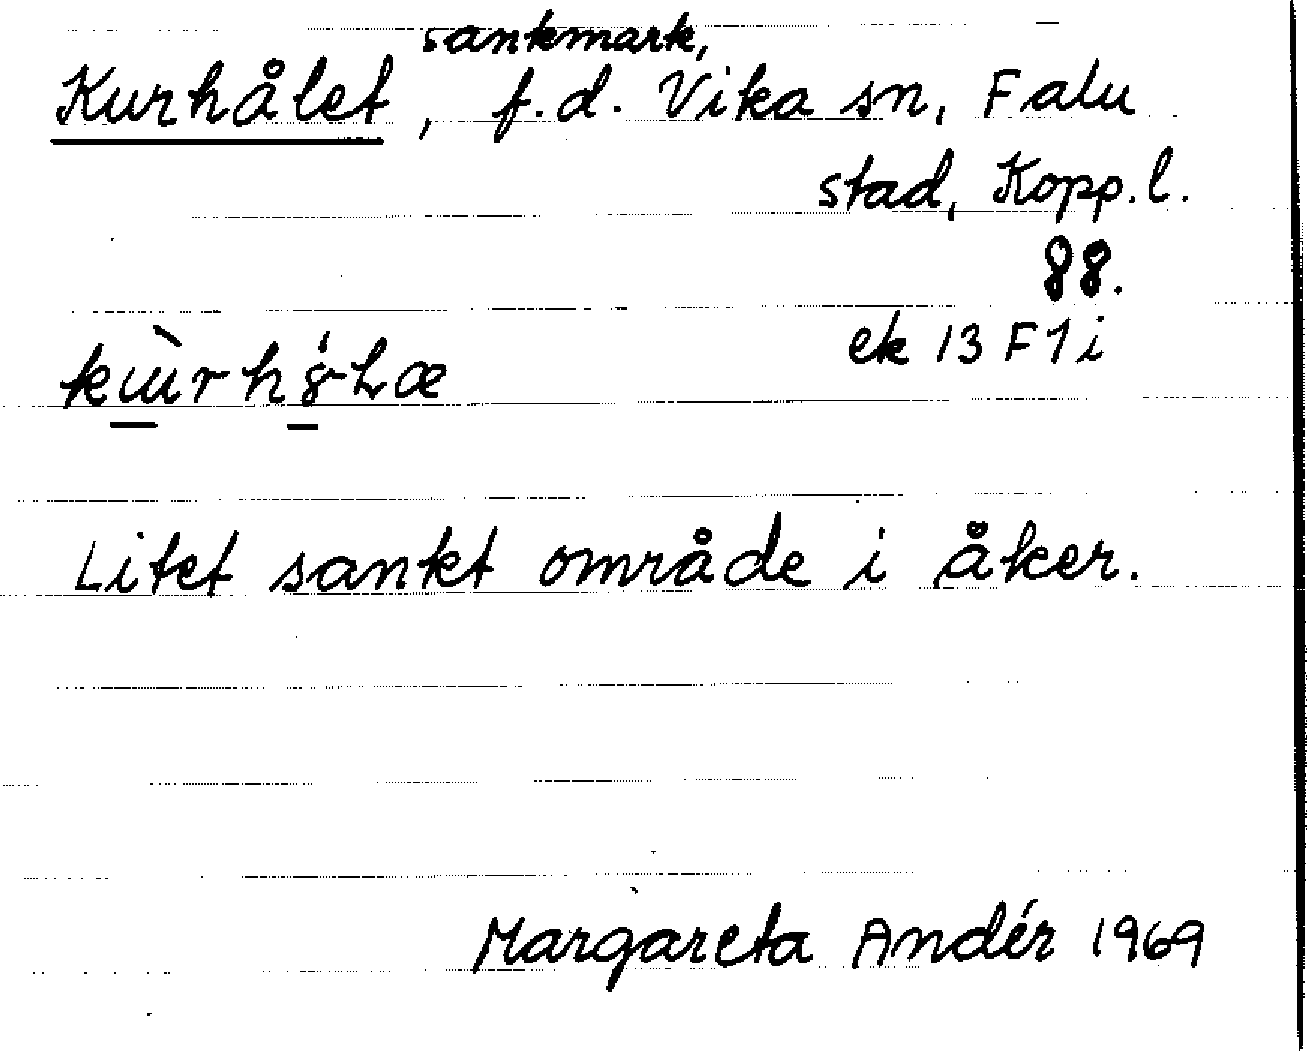 sankmark,
Kurhålet, f.d. Vika sn, Falu
stad, Kopp. l.
88.
ek 13 F 1 i
Litet sankt område i åker.
Margareta Andér 1969